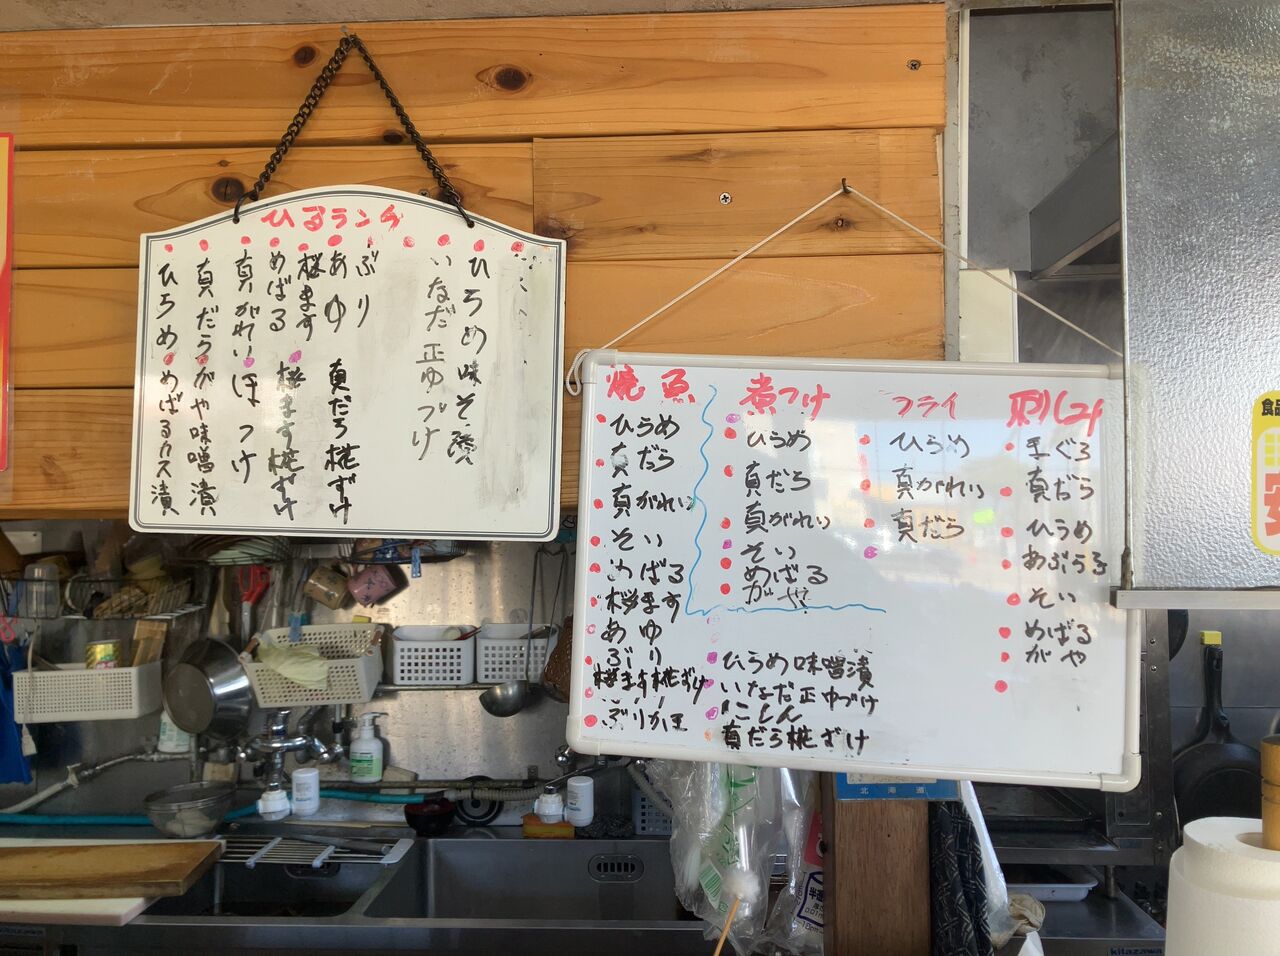 ひるランチ
ひらめ味そ漬
いなだ正ゆづけ
ぶり
あゆ 真だら糀ずけ
桜ます
めばる 桜ます糀ずけ
真がれい ほっけ
真だら がや味噌漬
ひらめ めばるカス漬
焼魚
ひらめ
真だら
真がれい
そい
めばる
桜ます
あゆ
ぶり
桜ます糀ずけ
ぶりカマ
煮つけ
ひらめ
真だら
真がれい
そい
めばる
がや
ひらめ味噌漬
いなだ正ゆづけ
にしん
真だら糀ずけ
フライ
ひらめ
真がれい
真だら
刺し身
まぐろ
真だら
ひらめ
あぶらこ
そい
めばる
がや
北海道
kitazawa
kitazawa